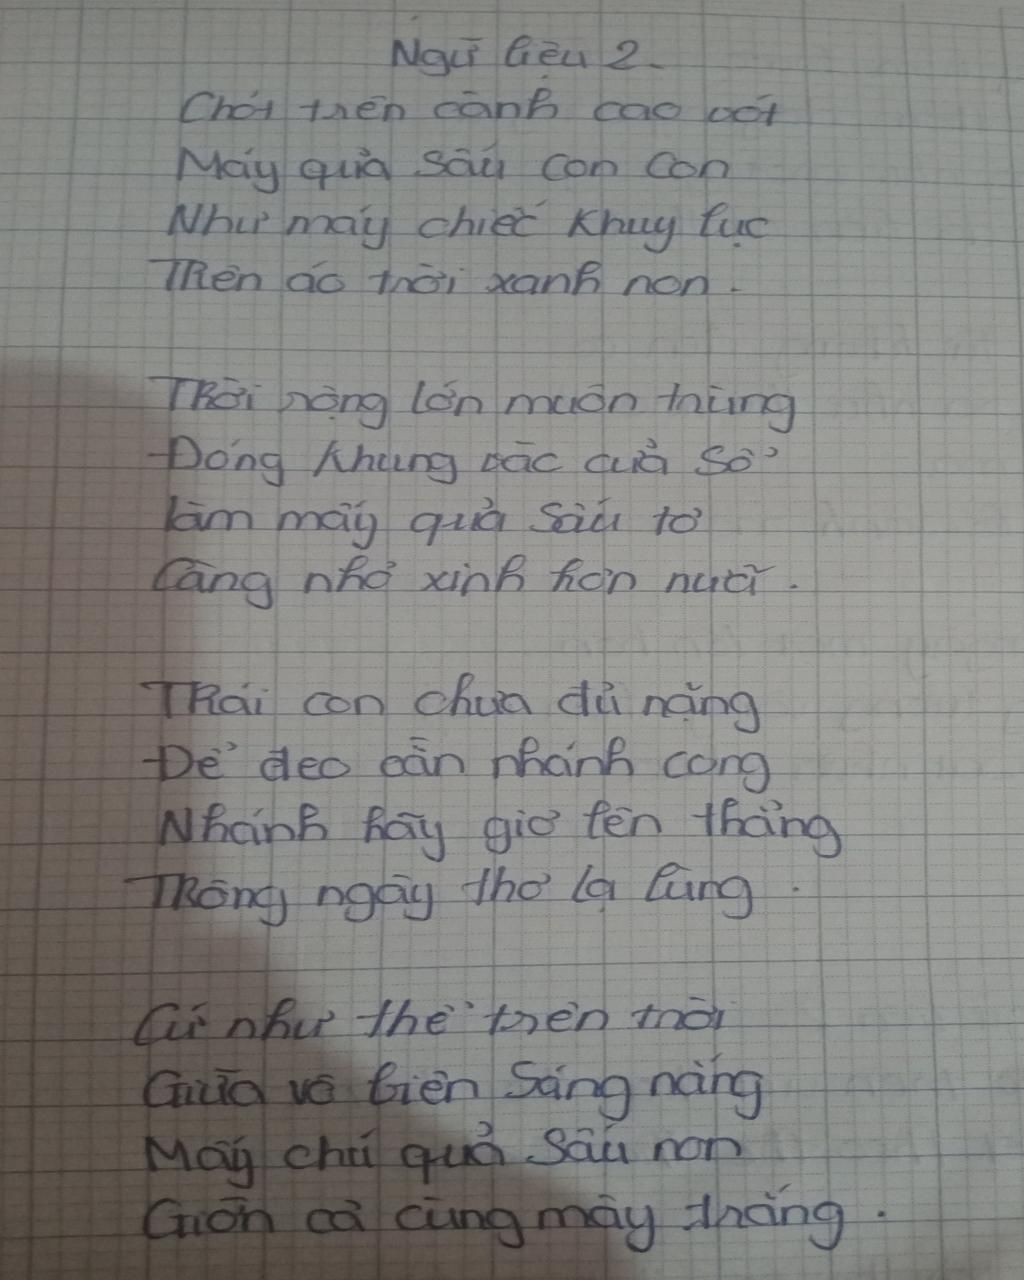 Ngữ liệu 2.
Chót trên cành cao vót
Mấy quả sấu con con
Như mấy chiếc khuy lục
Trên áo trời xanh non.
Trời rộng lớn muôn trùng
Đóng khung vào cửa sổ
Làm mấy quả sấu tơ
Càng nhỏ xinh hơn nữa.
Trái con chưa đủ nặng
Để đeo oằn nhánh cong
Nhánh hãy giơ lên thẳng
Trông ngây thơ lạ lùng.
Cứ như thế trên trời
Giữa vô biên sáng nắng
Mấy chú quả sấu non
Giỡn cả cùng mây trắng.